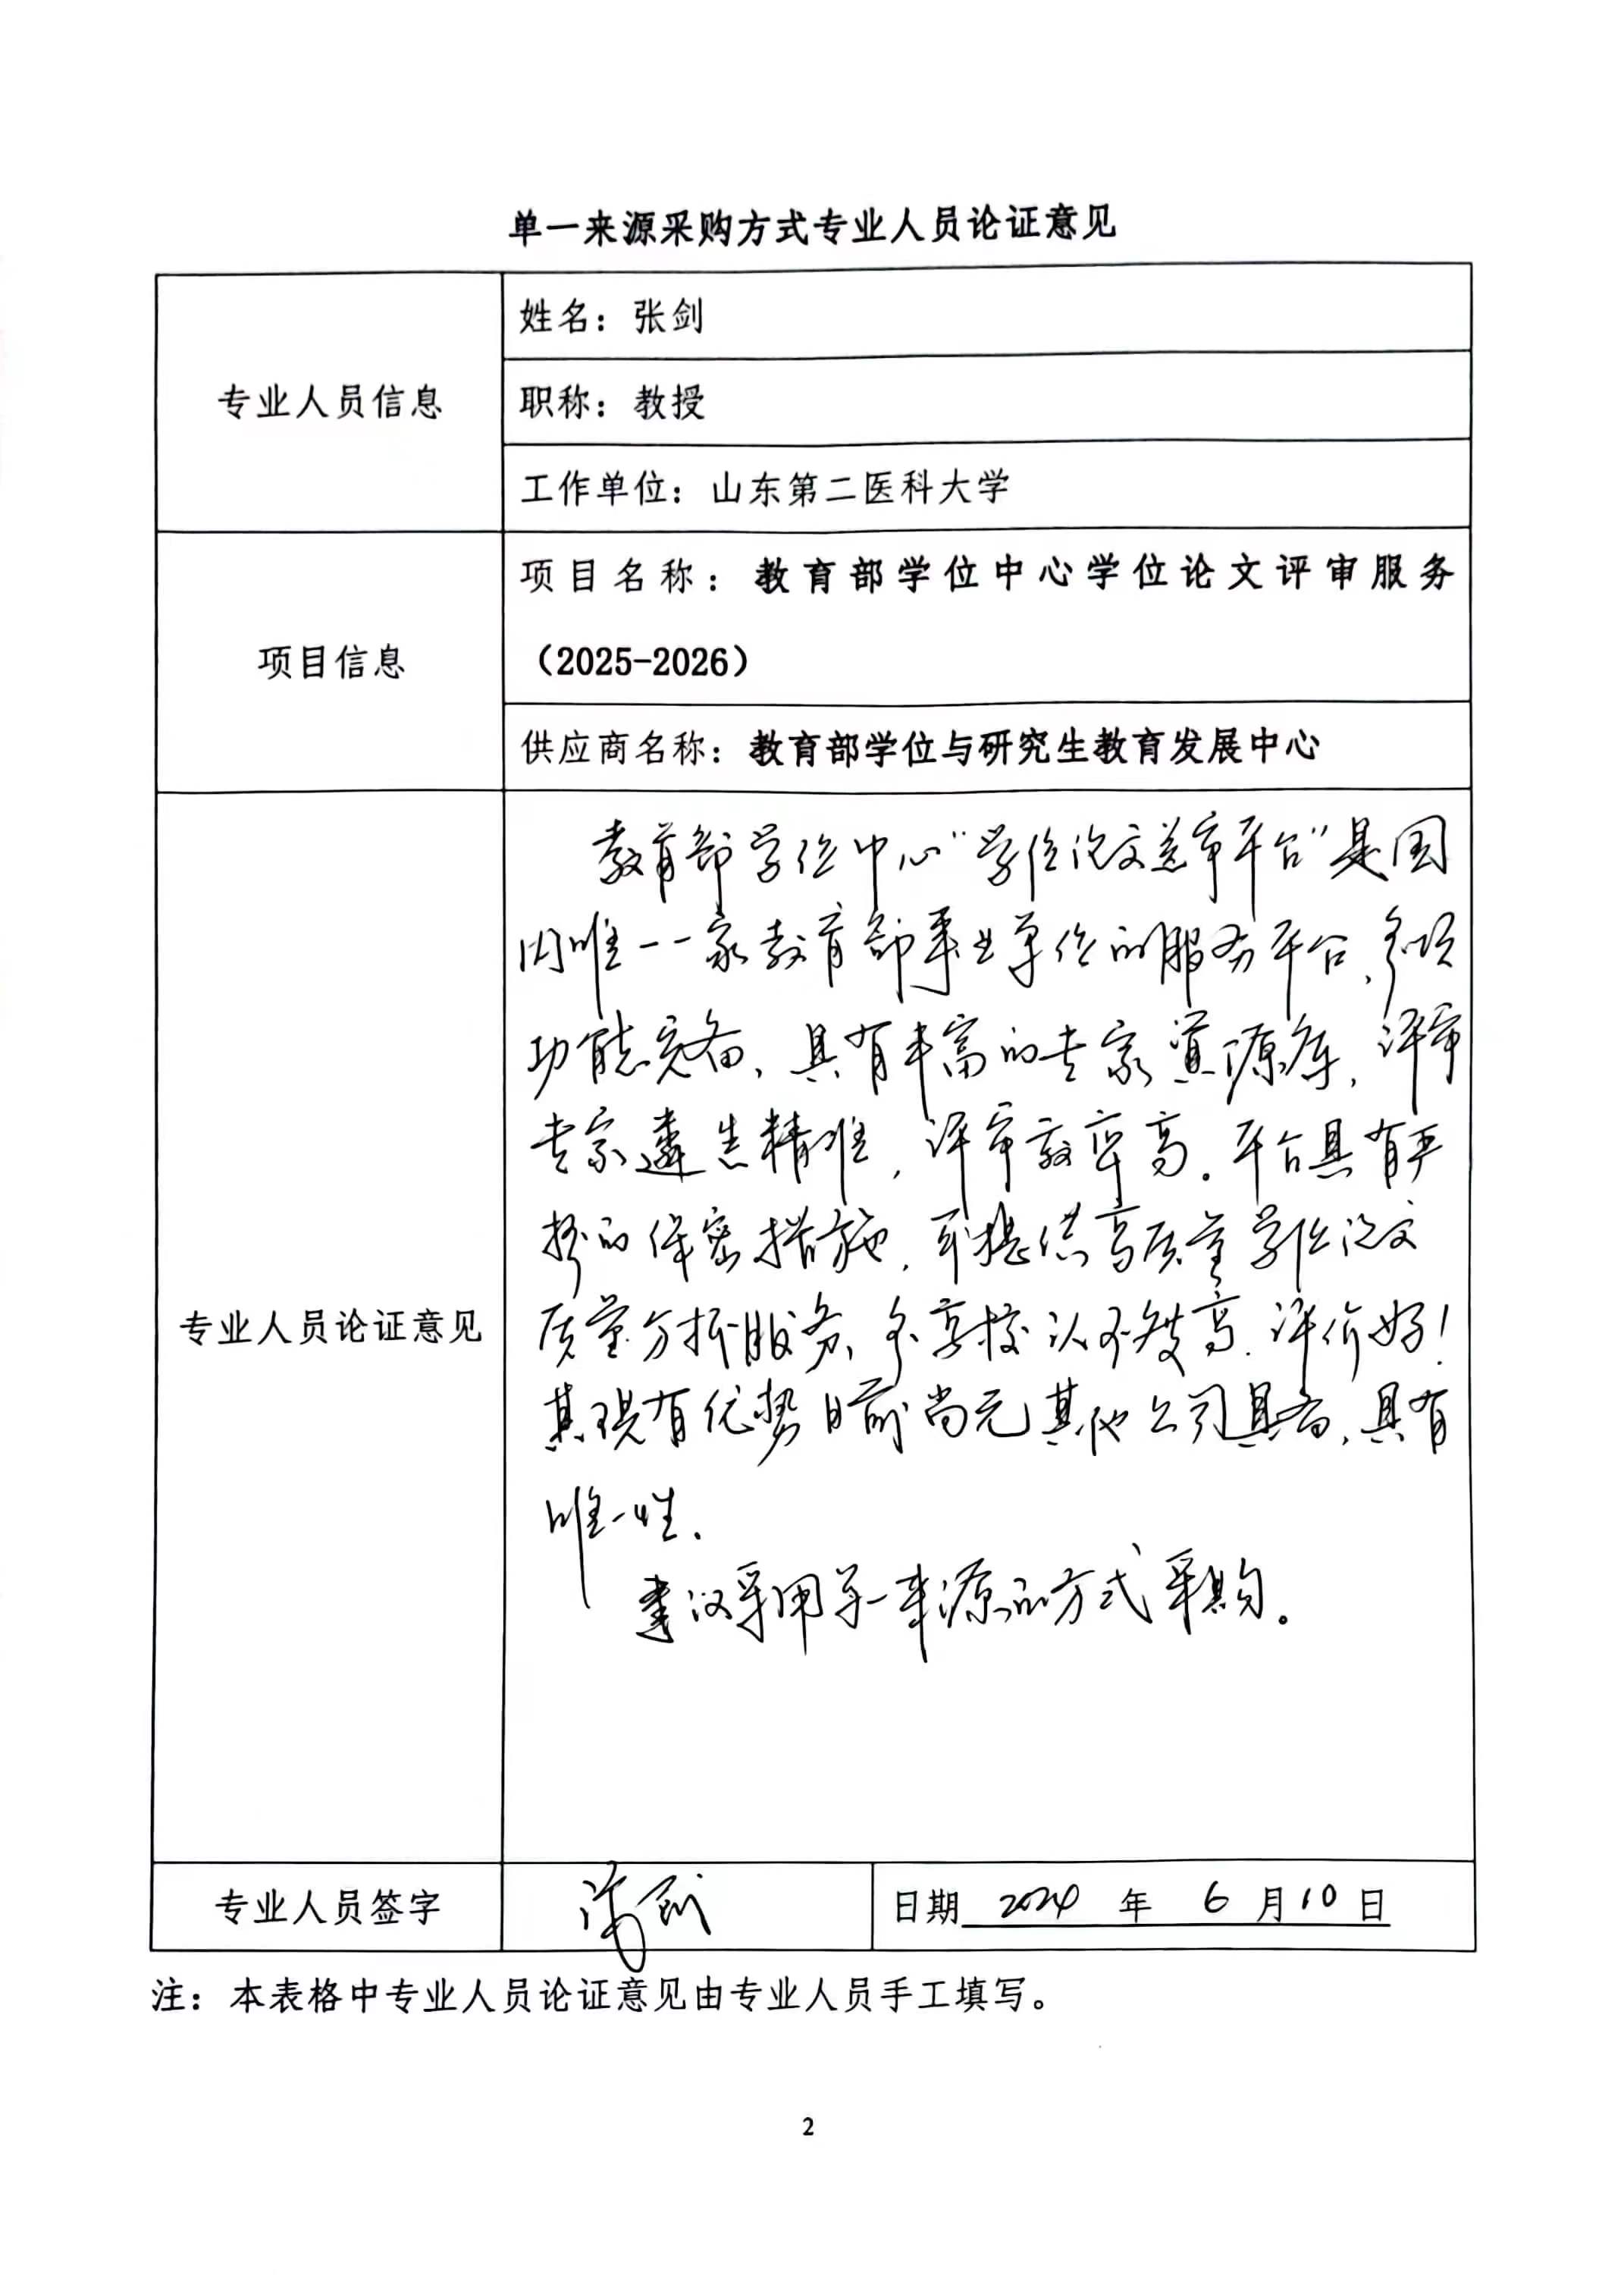 单一来源采购方式专业人员论证意见
专业人员信息
姓名：张剑
职称：教授
工作单位：山东第二医科大学
项目信息
项目名称：教育部学位中心学位论文评审服务
（2025-2026）
供应商名称：教育部学位与研究生教育发展中心
专业人员论证意见
教育部学位中心“学位论文送审平台”是国
内唯一一家教育部事业单位的服务平台，多项
功能完备，具有丰富的专家资源库，评审
专家遴选精准，评审效率高。平台具有严
格的保密措施，可提供高质量学位论文
质量分析服务，各高校认可度高，评价好！
其现有优势目前尚无其他公司具备，具有
唯一性。
建议采用单一来源的方式采购。
专业人员签字
张剑
日期 2024 年 6 月 10 日
注：本表格中专业人员论证意见由专业人员手工填写。
2